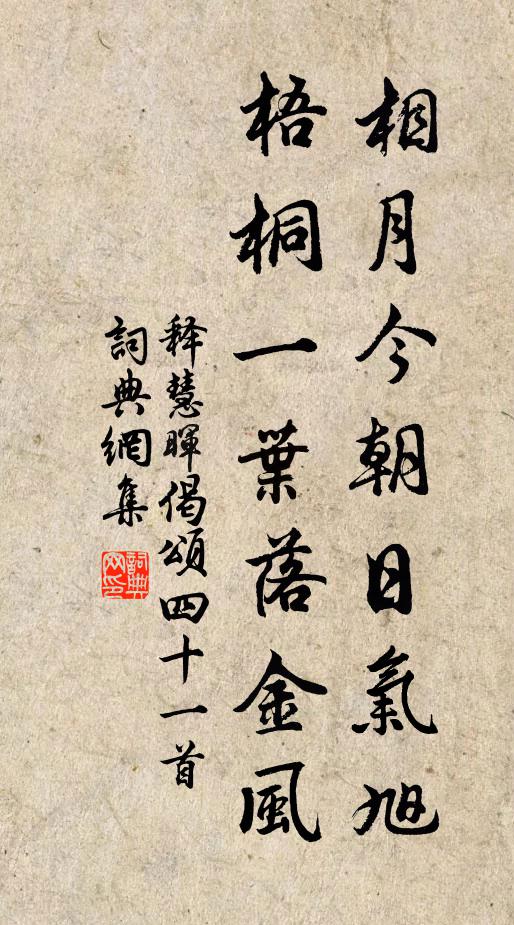 相月今朝日氣旭
梧桐一葉落金風
释慧暉偈頌四十一首
詞典網集
詞典网印